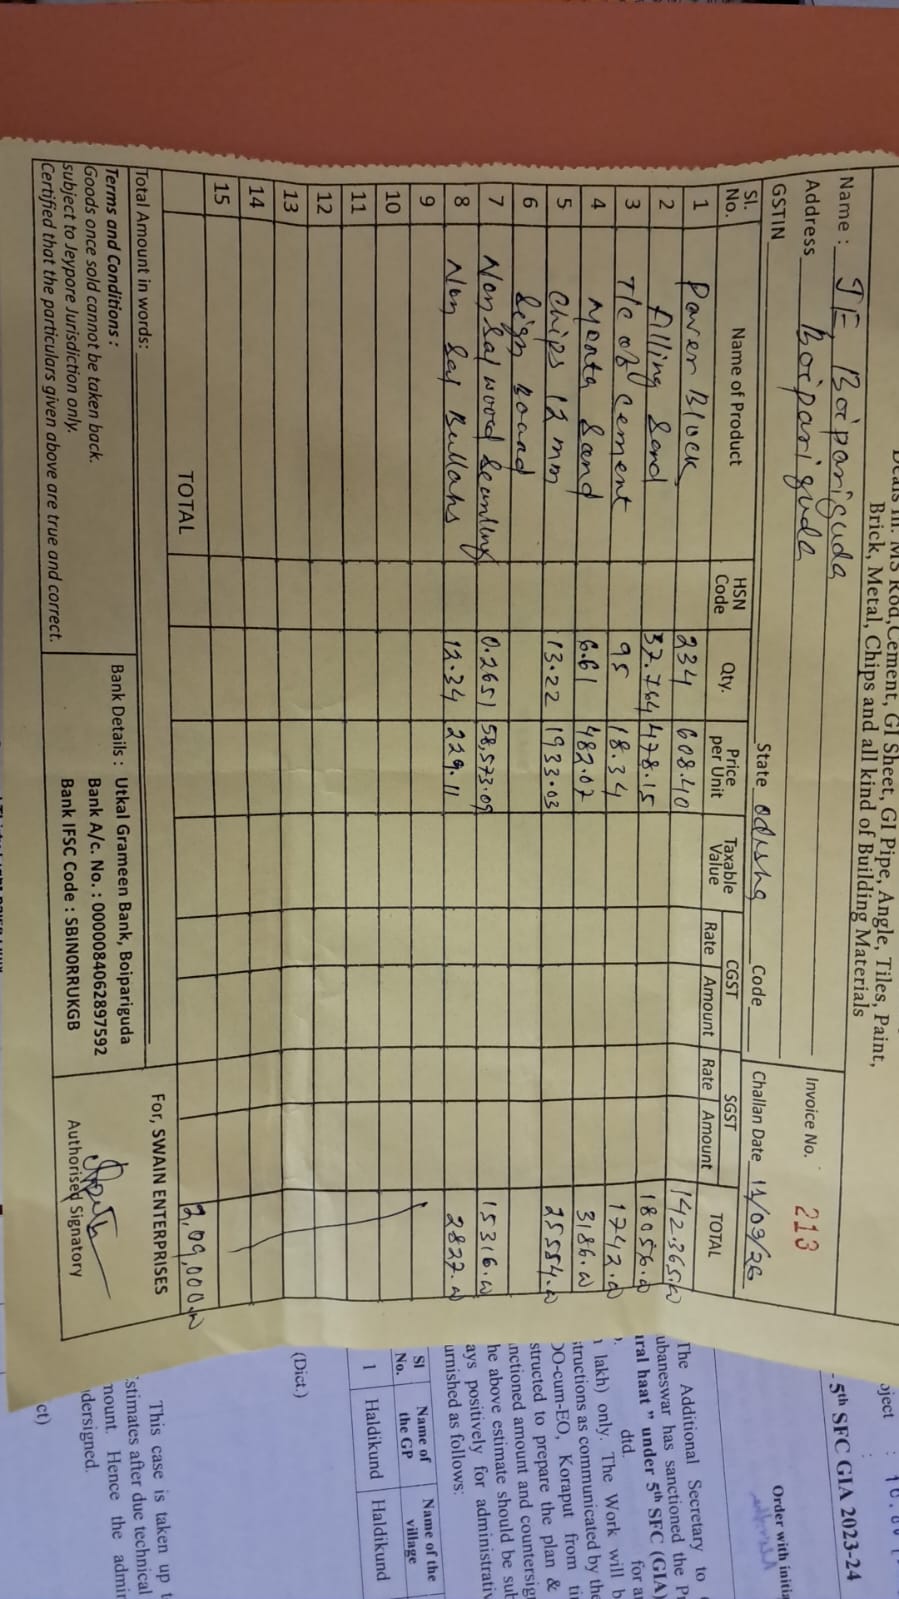 Deals in: MS Rod,Cement, GI Sheet, GI Pipe, Angle, Tiles, Paint,
Brick, Metal, Chips and all kind of Building Materials
Name : JE, Boipariguda
Address Boipariguda
Invoice No. 213
GSTIN
State odisha Code
Challan Date 11/03/26
Sl. No. Name of Product HSN Code Qty. Price per Unit Taxable Value CGST Rate Amount SGST Rate Amount TOTAL
1 Paver Block 234 608.40 142365.00
2 filling Sand 37.764 478.15 18056.00
3 T/c of cement 95 18.34 1742.00
4 Sand 6.61 482.07 3186.00
5 Chips 12 mm 13.22 1933.03 25554.00
6 Sign Board
7 Non Sal wood Scantling 0.2651 58,573.09 15316.00
8 Non Sal Bullahs 12.34 229.11 2827.00
9
10
11
12
13
14
15
TOTAL 2,09,000.00
Total Amount in words:
Terms and Conditions :
Goods once sold cannot be taken back.
subject to Jeypore Jurisdiction only.
Certified that the particulars given above are true and correct.
Bank Details : Utkal Grameen Bank, Boipariguda
Bank A/c. No. : 0000084062897592
Bank IFSC Code : SBIN0RRUKGB
For, SWAIN ENTERPRISES
Authorised Signatory
Order with initia
5th SFC GIA 2023-24
The Additional Secretary to
ubaneswar has sanctioned the P
ral haat " under 5th SFC (GIA)
dtd. for a
lakh) only. The Work will b
structions as communicated by the
OO-cum-EO, Koraput from ti
structed to prepare the plan &
nctioned amount and countersig
he above estimate should be sub
ays positively for administrativ
urnished as follows:
Sl No. Name of the GP Name of the village
1 Haldikund Haldikund
(Dict.)
This case is taken up t
stimates after due technical
mount. Hence the admin
dersigned.
ct)